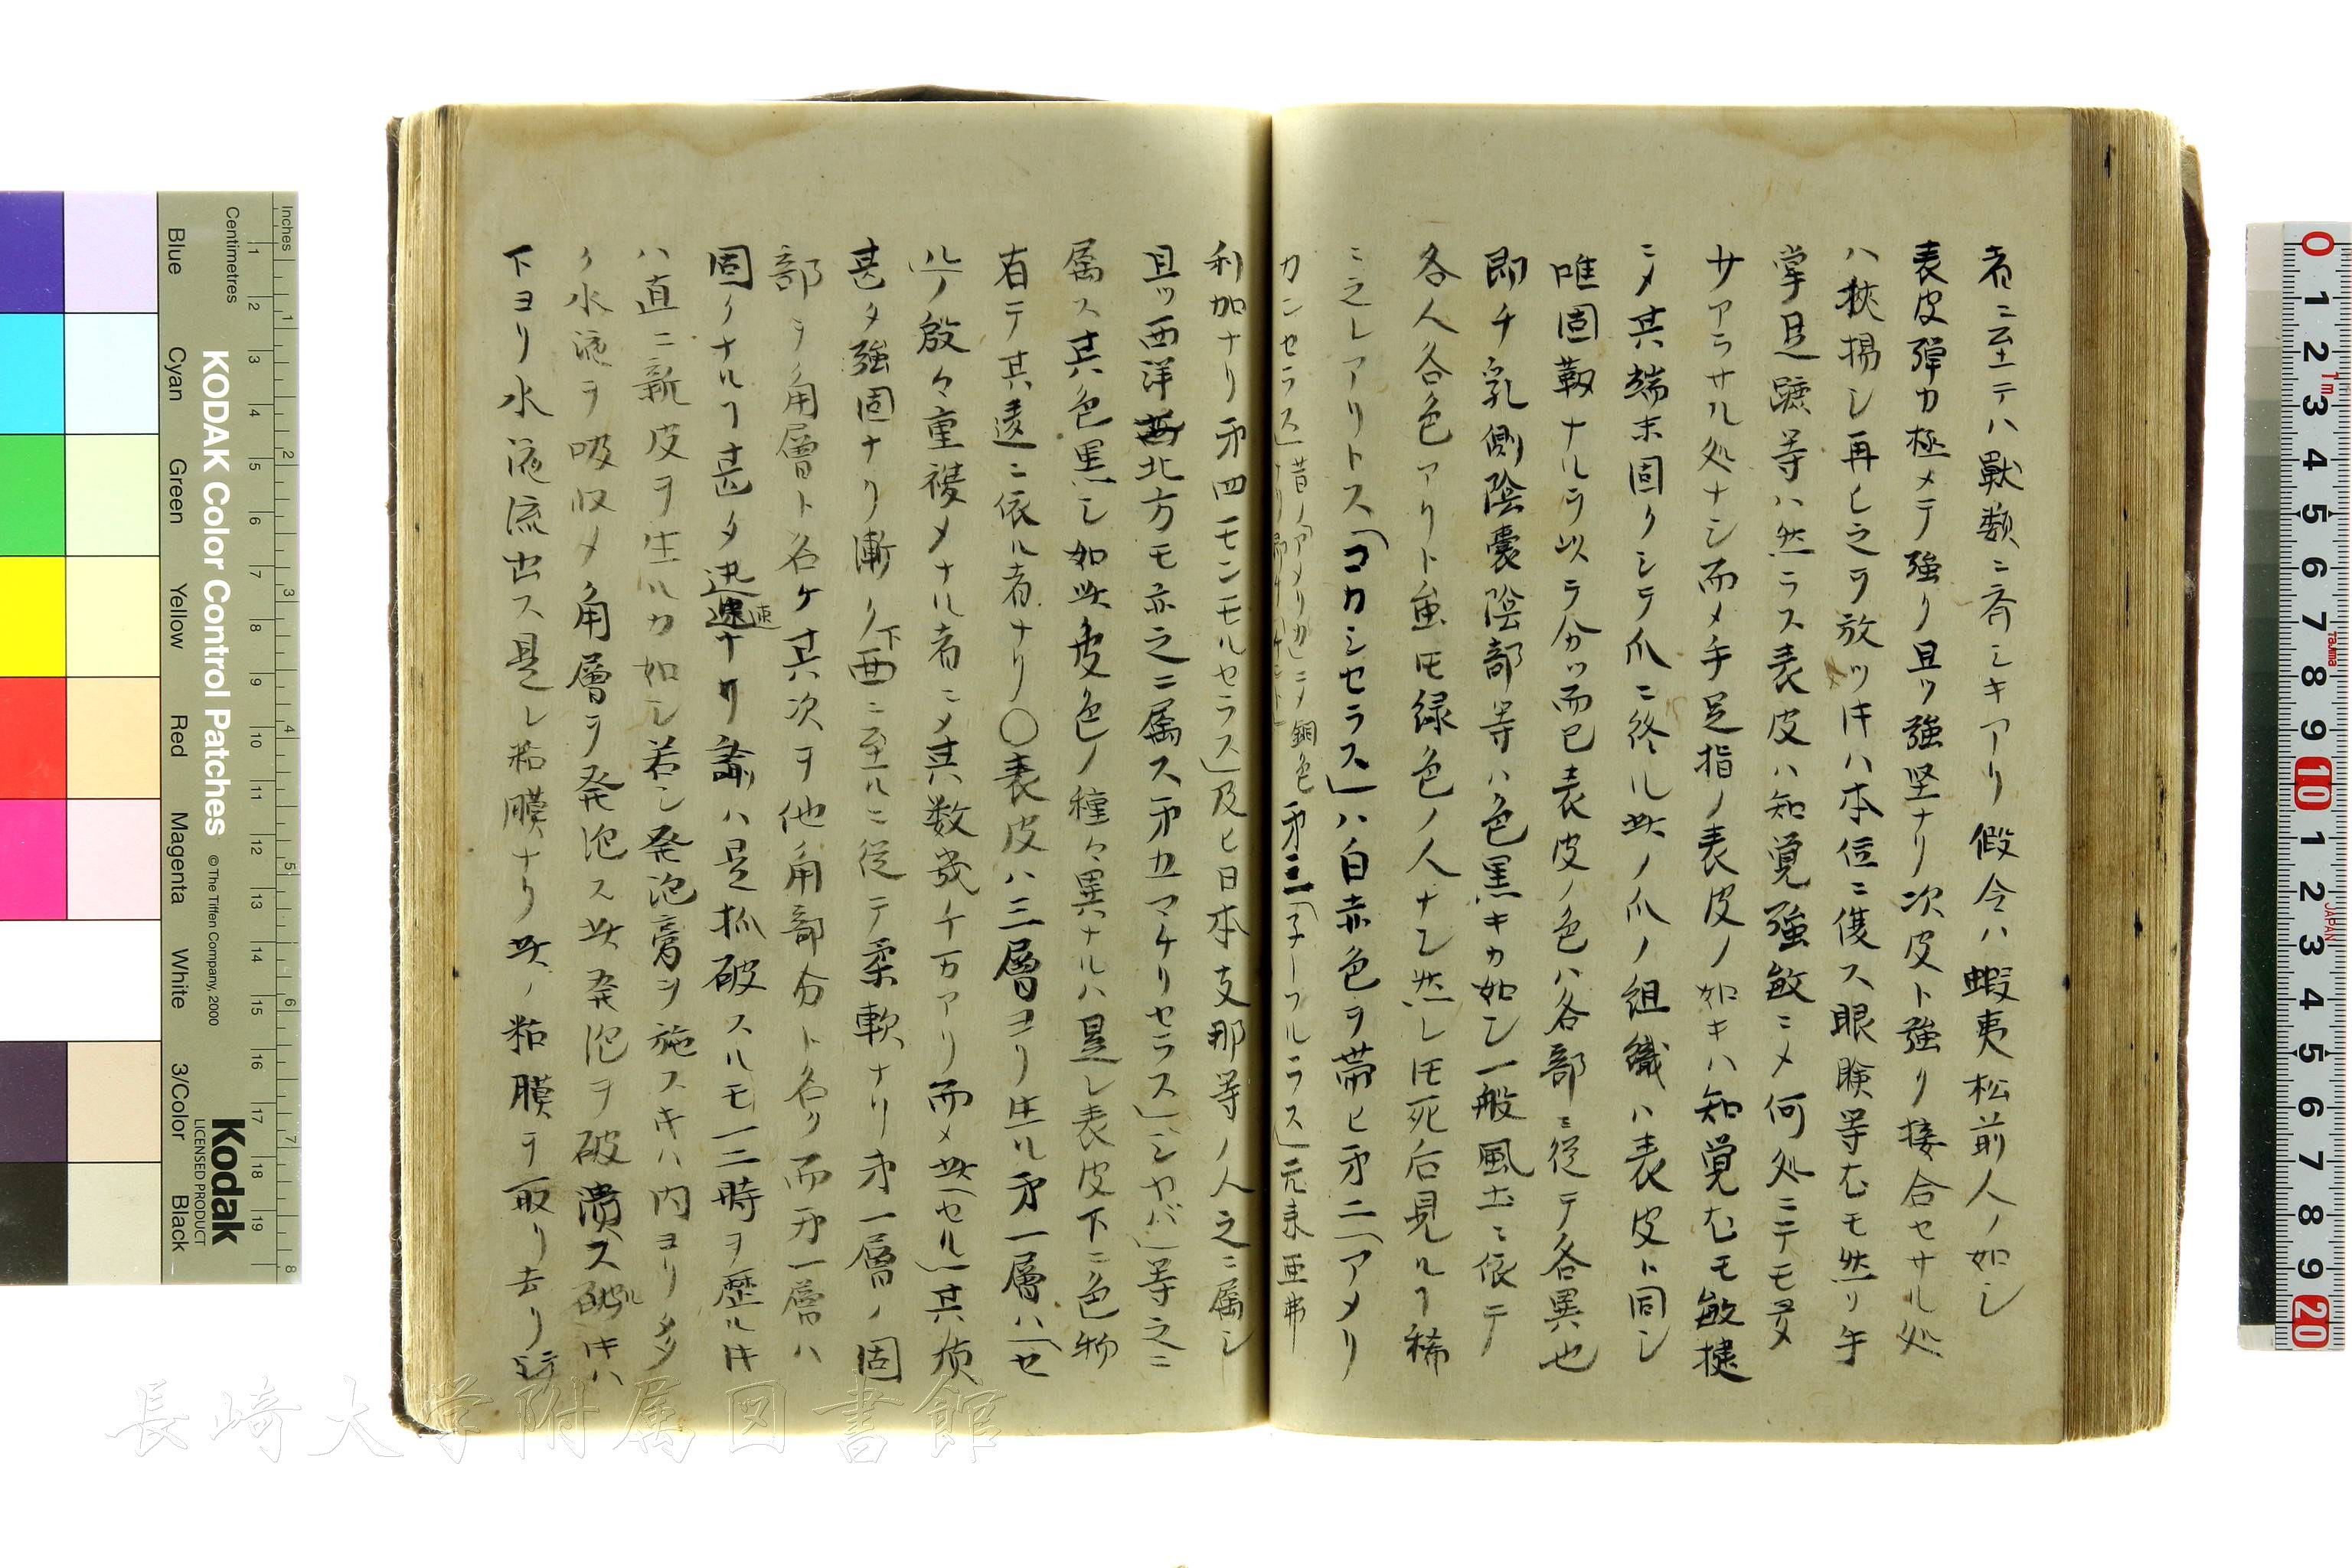 者ニ至テハ獣類ニ斉シキアリ假令ハ蝦夷松前人ノ如シ
表皮弾力極メテ強ク且ツ強堅ナリ次皮ト強ク接合セサル処
ハ挾揚シ再ヒ之ヲ放ツ片ハ本位ニ復ス眼瞼等尤モ然リ手
掌足蹠等ハ然ラス表皮ハ知覚強敏ニメ何処ニテモ
サアラサル処ナシ而メ手足指ノ表皮ノ如キハ知覚尤モ敏捷
ニメ其端末固クシテ爪ニ終ル此ノ爪ノ組織ハ表皮ト同シ
唯固靱ナルヲ以テ分ツ而已表皮ノ色ハ各部ニ従テ各異也
即チ乳側陰嚢陰部等ハ色黒キカ如シ一般風土ニ依テ
各人各色アリト虽モ緑色ノ人ナシ然レ𪜈死后見ルヿ稀
ニ之レアリトス「コカシセラス」ハ白赤色ヲ帯ヒ㐧二「アメリ
カンセラス」昔ノアメリカニメ銅色
㐧三「子ーフルラス」元来亜弗
利加ナリ㐧四モンモルセラス」及ヒ日本支那等ノ人之ニ属シ
且ツ西洋北方モ亦之ニ属ス㐧五マケリセラス」シヤバ」等之ニ
属ス其色黒シ如此皮色ノ種々異ナルハ是レ表皮下ニ色物
有テ其遠ニ依ル者ナリ〇表皮ハ三層ヨリ生ル㐧一層ハ「セ
ル」ノ殷々重複メナル者ニメ其数幾千万アリ而メ此「セル」其質
甚タ強固ナリ漸ク下西ニ至ルニ従テ柔軟ナリ㐧一層ノ固
部ヲ角層ト名ケ其次ヲ他角部分ト名ク而㐧一層ハ
固クナルヿ甚タ迅速ナリ諭ハ是抓破スルモ一二時ヲ歴ル片
ハ直ニ新皮ヲ生ルカ如シ若シ発泡膏ヲ施ス片ハ内ヨリ多
ク水液ヲ吸収メ角層ヲ発泡ス此発泡ヲ破潰ス破ル片ハ
下ヨリ水液流出ス是レ粘膜ナリ此ノ粘膜ヲ取リ去リテ
Inches
Centimetres
KODAK Color Control Patches
© The Tiffen Company, 2000
Kodak
LICENSED PRODUCT
Blue
Cyan
Green
Yellow
Red
Magenta
White
3/Color
Black
1 2 3 4 5 6 7 8 9 10 11 12 13 14 15 16 17 18 19
1 2 3 4 5 6 7 8
0 1 2 3 4 5 6 7 8 9 10 1 2 3 4 5 6 7 8 9 20
1m
Tajima
JAPAN
長崎大学附属図書館